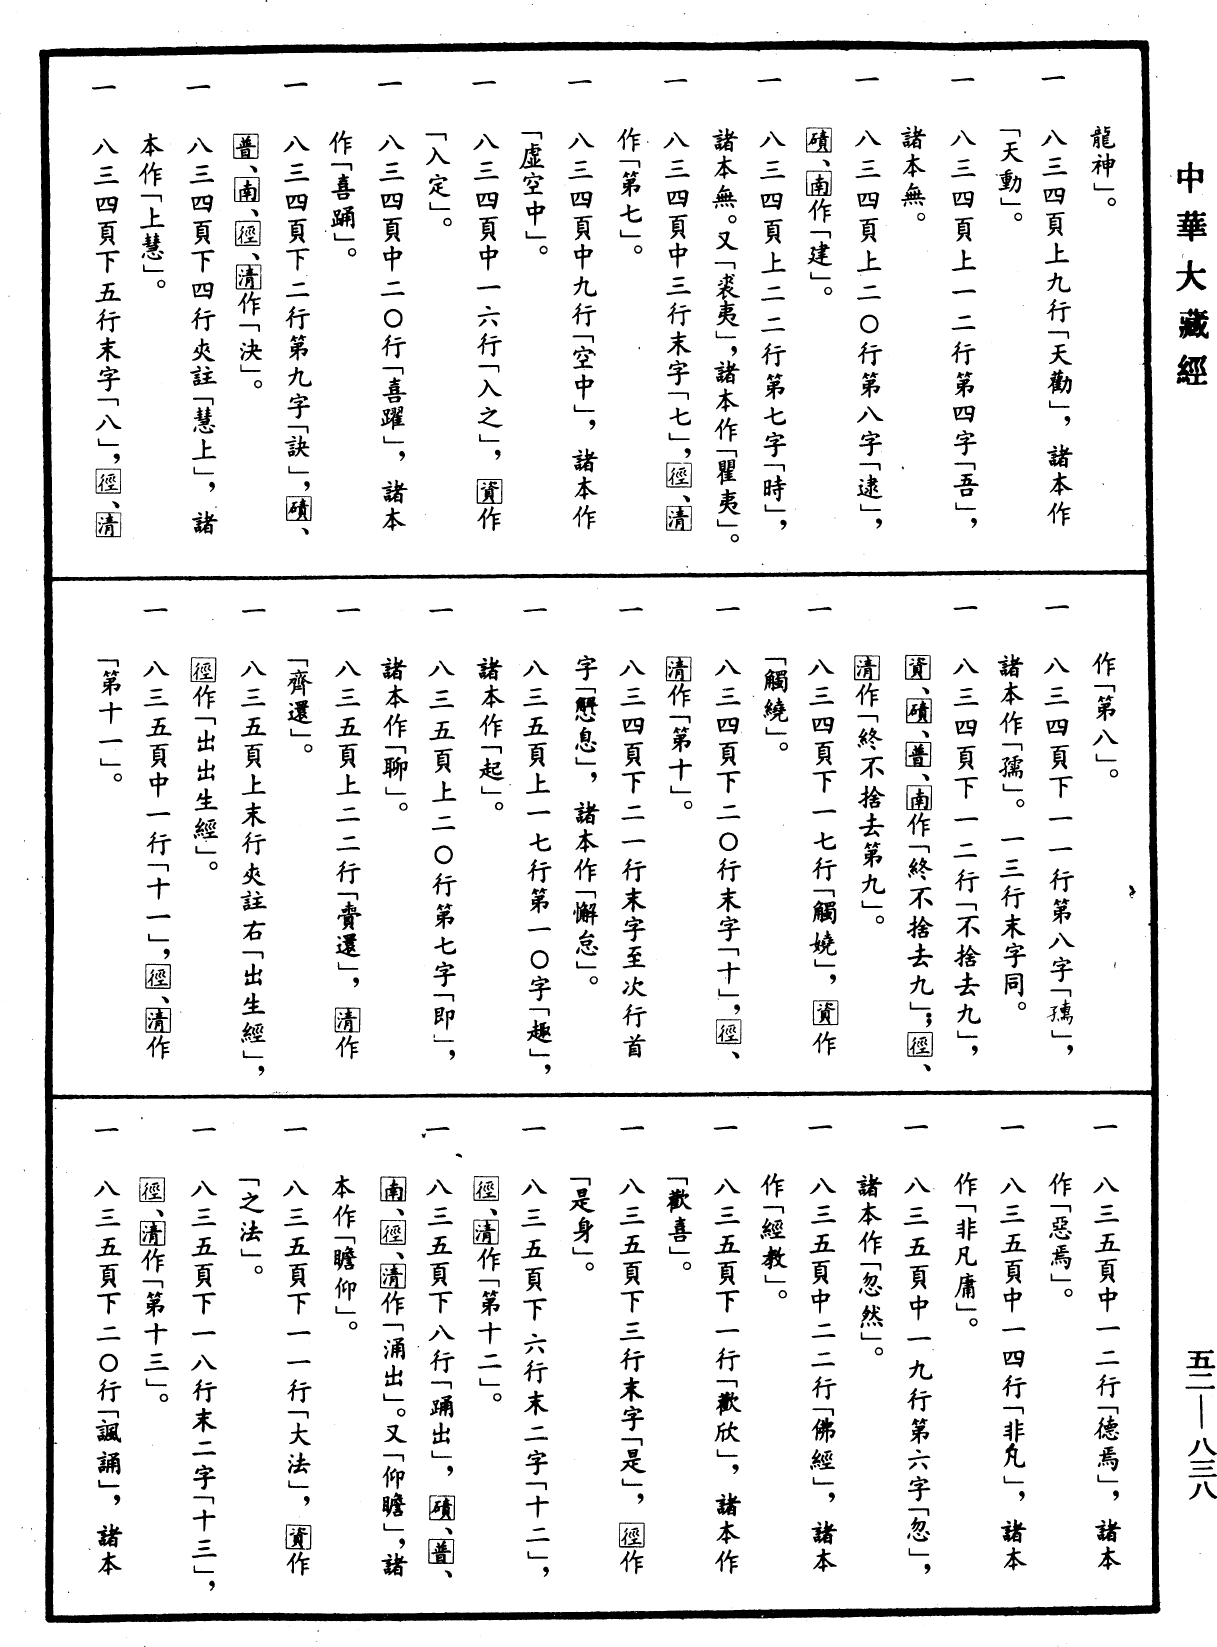 中華大藏經
龍神」。
一 八三四頁上九行「天勸」，諸本作
「天動」。
一 八三四頁上一二行第四字「吾」，
諸本無。
一 八三四頁上二〇行第八字「逮」，
磧、南作「建」。
一 八三四頁上二二行第七字「時」，
諸本無。又「裘夷」，諸本作「瞿夷」。
一 八三四頁中三行末字「七」，徑、清
作「第七」。
一 八三四頁中九行「空中」，諸本作
「虛空中」。
一 八三四頁中一六行「入之」，資作
「入定」。
一 八三四頁中二〇行「喜躍」，諸本
作「喜踊」。
一 八三四頁下二行第九字「訣」，磧、
普、南、徑、清作「決」。
一 八三四頁下四行夾註「慧上」，諸
本作「上慧」。
一 八三四頁下五行末字「八」，徑、清
作「第八」。
一 八三四頁下一一行第八字「𡦗」，
諸本作「孺」。一三行末字同。
一 八三四頁下一二行「不捨去九」，
資、磧、普、南作「終不捨去九」；徑、
清作「終不捨去第九」。
一 八三四頁下一七行「觸嬈」，資作
「觸繞」。
一 八三四頁下二〇行末字「十」，徑、
清作「第十」。
一 八三四頁下二一行末字至次行首
字「懸息」，諸本作「懈怠」。
一 八三五頁上一七行第一〇字「趣」，
諸本作「起」。
一 八三五頁上二〇行第七字「即」，
諸本作「聊」。
一 八三五頁上二二行「賷還」，清作
「齊還」。
一 八三五頁上末行夾註右「出生經」，
徑作「出出生經」。
一 八三五頁中一行「十一」，徑、清作
「第十一」。
一 八三五頁中一二行「德焉」，諸本
作「惡焉」。
一 八三五頁中一四行「非凡」，諸本
作「非凡庸」。
一 八三五頁中一九行第六字「忽」，
諸本作「忽然」。
一 八三五頁中二二行「佛經」，諸本
作「經教」。
一 八三五頁下一行「歡欣」，諸本作
「歡喜」。
一 八三五頁下三行末字「是」，徑作
「是身」。
一 八三五頁下六行末二字「十二」，
徑、清作「第十二」。
一 八三五頁下八行「踊出」，磧、普、
南、徑、清作「涌出」。又「仰瞻」，諸
本作「瞻仰」。
一 八三五頁下一一行「大法」，資作
「之法」。
一 八三五頁下一八行末二字「十三」，
徑、清作「第十三」。
一 八三五頁下二〇行「諷誦」，諸本
五二—八三八